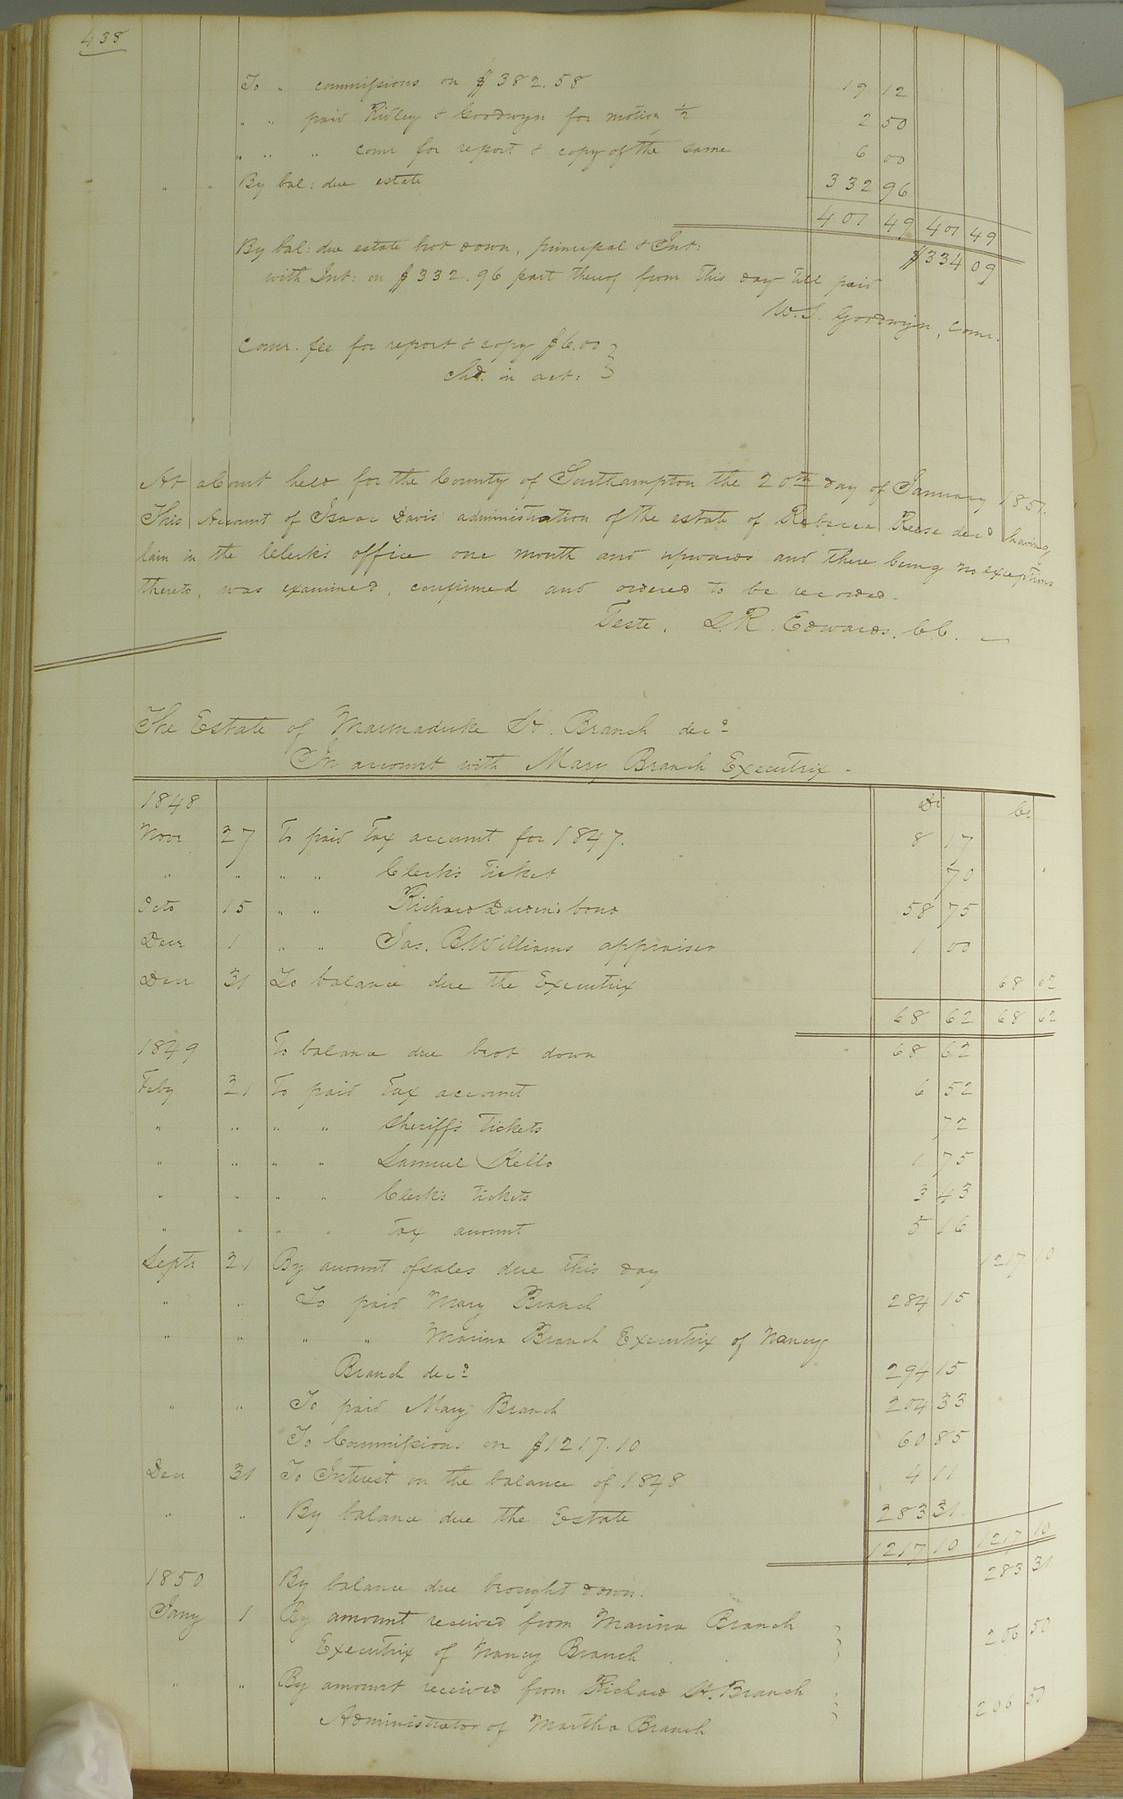 438
To " commissions on $382.58 19 12
" " paid Ridley & Goodwyn for motion 1/2 2 50
" " " comr for report & copy of the same 6 00
" " By bal: due estate 332 96
401 49 401 49
By bal: due estate brot down, principal & Int: $334 09
with Int: on $332.96 part thereof from this day till paid
W.S. Goodwyn, comr.
Comr. fee for report & copy $6.00
Chd. in act:
At a Court held for the County of Southampton the 20th day of January 1851.
This Account of Isaac Davis administration of the estate of Rebecca Reese decd having
lain in the Clerk's office one month and upwards and there being no exceptions
thereto, was examined, confirmed and ordered to be recorded.
Teste, L.R. Edwards, C.C.
The Estate of Marmaduke H. Branch decd
In account with Mary Branch Executrix
1848 Dr Cr
Novr 27 To paid Tax account for 1847. 8 17
" " " " Clerk's Ticket 70
Octo 15 " " Richard Darden's bond 58 75
Decr 1 " " Jas. B. Williams appraiser 1 00
Decr 31 To balance due the Executrix 68 62
68 62 68 62
1849 To balance due brot down 68 62
Feby 21 To paid Tax account 6 52
" " " " Sheriff's Tickets 72
" " " " Samuel Kello 1 75
" " " " Clerk's tickets 3 43
" " " " Tax amount 5 16
Septr 21 By amount of sales due this day 1217 10
" " To paid Mary Branch 284 15
" " " " Marina Branch Executrix of Nancy
Branch decd 294 15
" " To paid Mary Branch 204 33
To Commissions on $1217.10 60 85
Decr 31 To Interest on the balance of 1848 4 11
" " By balance due the Estate 283 31
1217 10 1217 10
1850 By balance due brought down. 283 31
Jany 1 By amount received from Marina Branch
Executrix of Nancy Branch 206 50
" " By amount received from Richard H. Branch
Administrator of Martha Branch 206 50